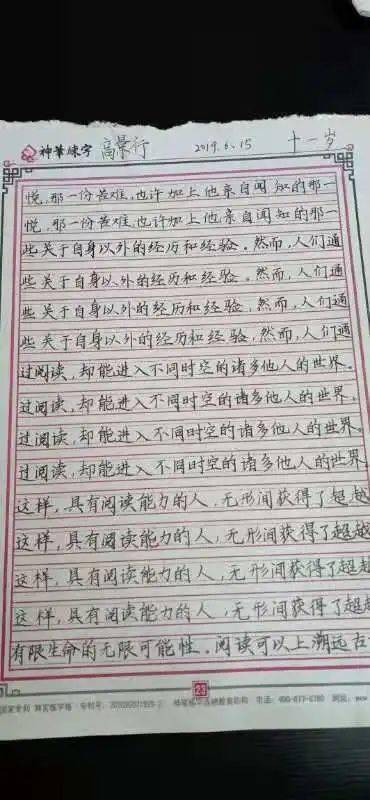 神笔练字 高景行 2019.6.15 十一岁
悦,那一份苦难,也许加上他亲自闻知的那一
悦,那一份苦难,也许加上他亲自闻知的那一
些关于自身以外的经历和经验。然而,人们通
些关于自身以外的经历和经验。然而,人们通
些关于自身以外的经历和经验,然而,人们通
些关于自身以外的经历和经验,然而,人们通
过阅读,却能进入不同时空的诸多他人的世界。
过阅读,却能进入不同时空的诸多他人的世界。
过阅读,却能进入不同时空的诸多他人的世界。
过阅读,却能进入不同时空的诸多他人的世界
这样,具有阅读能力的人,无形间获得了超越
这样,具有阅读能力的人,无形间获得了超越
这样,具有阅读能力的人,无形间获得了超越
这样,具有阅读能力的人,无形间获得了超越
有限生命的无限可能性。阅读可以上溯远古
23
国家专利 电话: